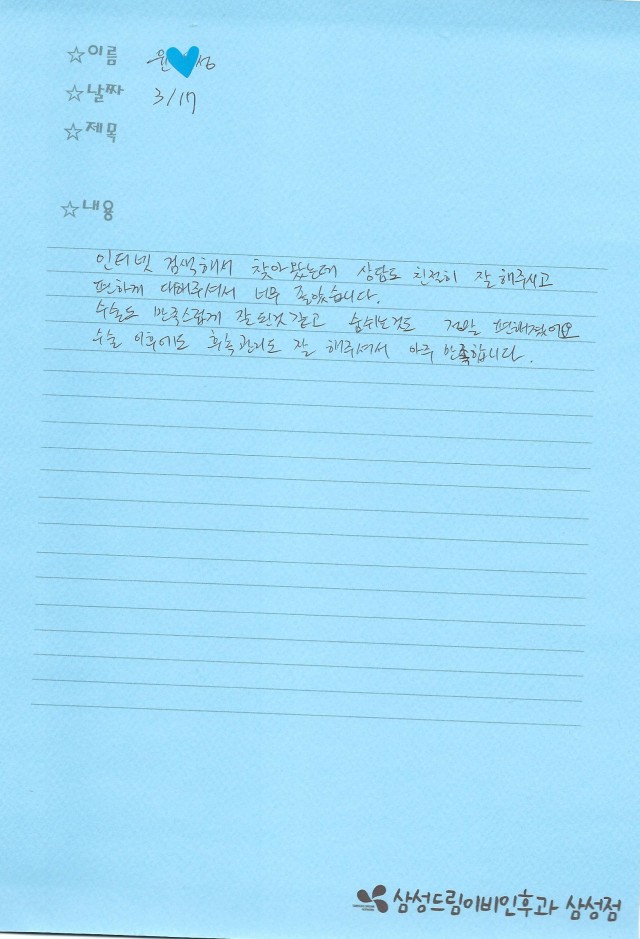 ☆이름 윤 성
☆날짜 3/17
☆제목
☆내용
인터넷 검색해서 찾아봤는데 상담도 친절히 잘해주시고
편하게 대해주셔서 너무 좋았습니다.
수술도 만족스럽게 잘 된것 같고 숨쉬는것도 정말 편해졌어요
수술 이후에도 회복관리도 잘 해주셔서 아주 만족합니다.
삼성드림이비인후과 삼성점